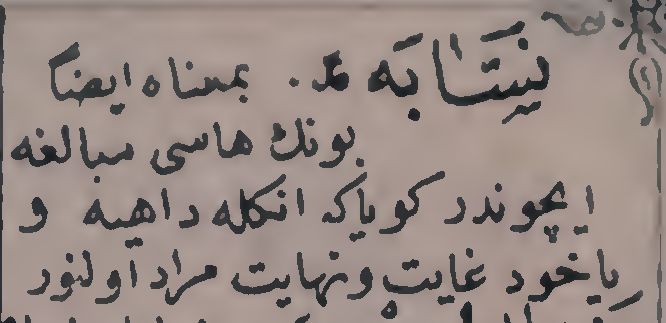 نَسَّابَه عـ. بمعناه ايضا
بونك هاسى مبالغه
ايچوندر كوياكه انكله داهيه و
ياخود غايت ونهايت مراد اولنور